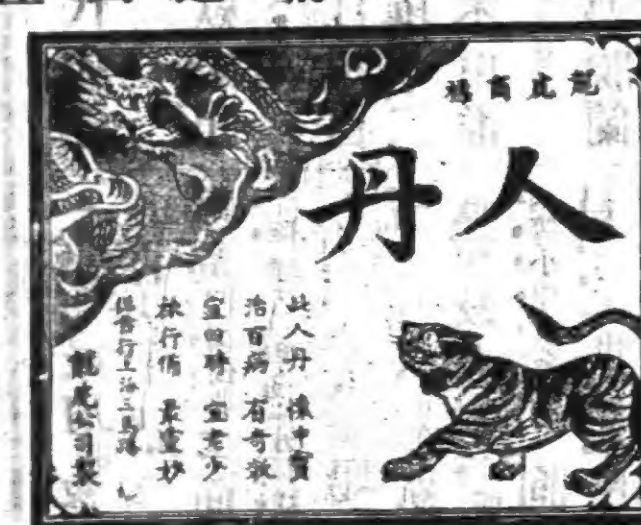 龍虎商標
人丹
此人丹 懷中寶
治百病 有奇效
宜四時 宜老少
旅行備 最靈妙
行上海三馬路
龍虎公司製